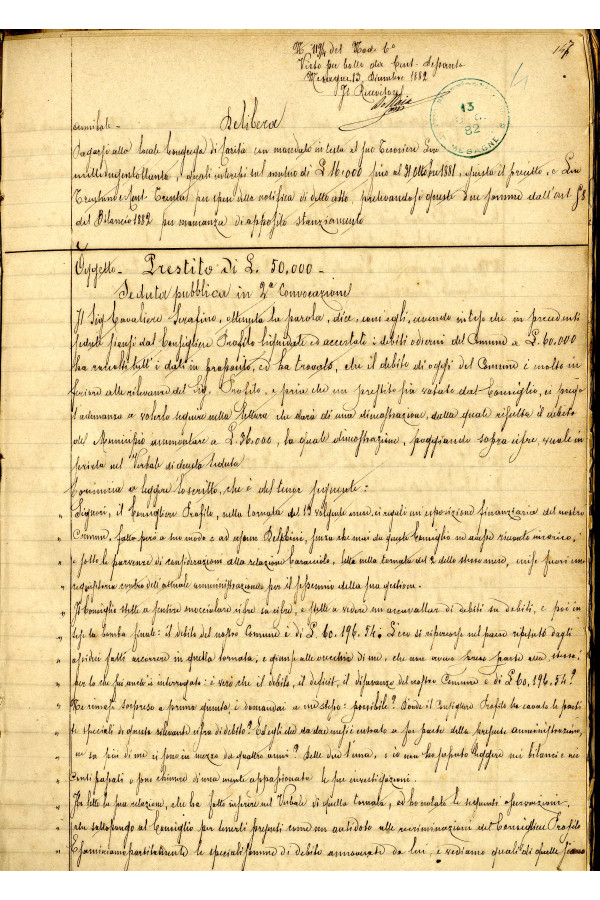 N. 1194 del Mod. 6°
147
Visto per bollo da Cent. sessanta
Mesagne 13 Dicembre 1882
Il Ricevitore
13
82
MESAGNE
Delibera
Pagarsi alla locale Congrega di Carità con mandato in testa al suo Tesoriere Lire
quali interessi sul mutuo di £ 16.000 fino al 31 Ottobre 1881, giusta il precetto, e Lire
Trentuno e Cent. Trenta per spese della notifica di detto atto, prelevandosi queste due somme dall'art. 58
del Bilancio 1882 per mancanza di apposito stanziamento
Oggetto - Prestito di L. 50,000 -
Seduta pubblica in 2ª Convocazione
Il Sig. Cavaliere Serafino, ottenuta la parola, dice, con egli, avendo inteso che in precedenti
sedute siansi dal Consigliere Profilo liquidate ed accertate i debiti odierni del Comune a L. 60.000
ha raccolto tutt'i dati in proposito, ed ha trovato, che il debito di oggi del Comune è molto in
feriore alle rilevanze del Sig. Profilo, e pria che un prestito sia votato dal Consiglio, ei prega
l'adunanza a volerlo seguire nella lettura che darà di una dimostrazione, dalla quale risulta il debito
del Municipio ammontare a L. 36.000, la quale dimostrazione, poggiando sopra cifre, vuole in
serirsi nel Verbale di questa seduta
Comincia a leggere lo scritto, che è del tenor seguente:
" Signori, il Consigliere Profilo, nella tornata del 19 volgente mese, ci regalò un'esposizione finanziaria del nostro
" Comune, fatta però a suo modo e ad Delphini, senza che mai da questo Consiglio ne avesse ricevuto incarico,
" e sotto le parvenze di considerazioni alla relazione Caracciolo, letta nella tornata del 2 dello stesso mese, uscì fuori una
" requisitoria contro dell'attuale amministrazione per il sessennio della sua gestione.
" Il Consiglio stette a sentire snocciolare cifre su cifre, e stette a vedere un accavallar di debiti su debiti, e poi in
" tese la bomba finale: il debito del nostro Comune è di L. 60.196.54. L'eco si ripercosse nel paese ripetuto dagli
" fatti accorrere in quella tornata, e giunse alle orecchie di me, che non avevo preso parte alla stessa,
" per lo che fui anch'io interrogato: è vero che il debito, il deficit, il disavanzo del nostro Comune è di L. 60,196.54?
" Ne rimasi sorpreso a primo giunta e domandai a me stesso: possibile? Donde il Consigliere Profilo ha cavato le parti
" te speciali di questa rilevante cifra di debito? Ed egli che da due mesi è entrato a far parte della presente amministrazione,
" ne sa più di me che sono in mezzo da quattro anni? Delle due l'una, o io non ho saputo leggere nei bilanci e nei
" Conti passati o sono chimere di una mente appassionata le sue investigazioni.
" Ho letto la sua relazione, che ha fatto inserire nel Verbale di quella tornata, ed ho notato le seguenti osservazioni,
" che sottopongo al Consiglio per tenerli presenti come un antidoto alle recriminazioni del Consigliere Profilo
" Esaminiamo partitamente le speciali somme di debito annoverate da lui, e vediamo quali di quelle siano